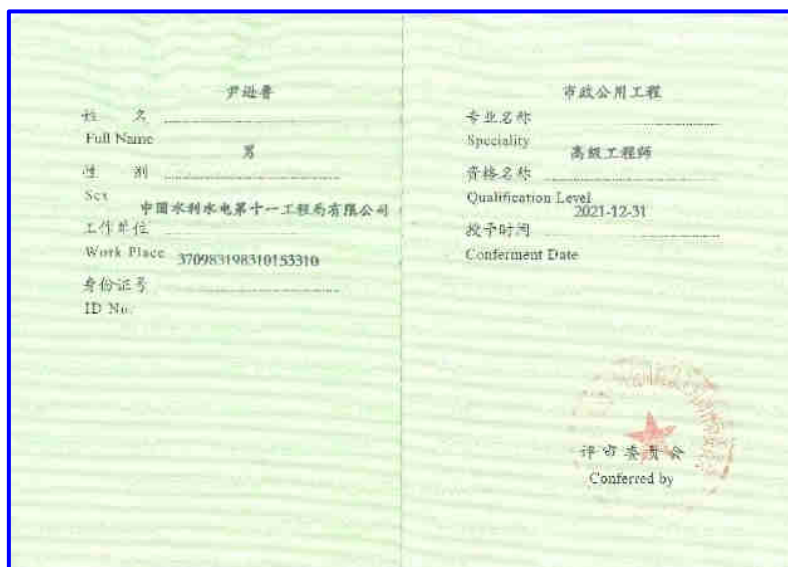 尹逊鲁
姓 名
Full Name
男
性 别
Sex
中国水利水电第十一工程局有限公司
工作单位
Work Place
370983198310153310
身份证号
ID No.
市政公用工程
专业名称
Speciality
高级工程师
资格名称
Qualification Level
2021-12-31
授予时间
Conferment Date
评审委员会
Conferred by